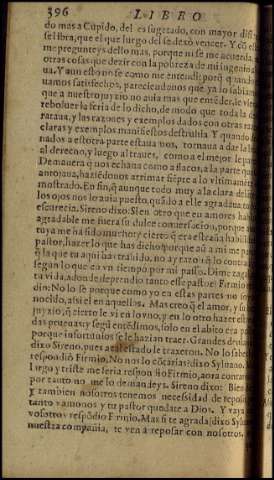 396 LIBRO
do mas a Cupido, del es sugetado, con mayor
se libra, que el que luego del se dexò vencer. Y cõ
me pregunteys dello mas, porque ni se me acuerda,
otras cosas que dezir con la pobreza de mi ingenio
ua. Y aun esto no se como me entendi: porq̃
uamos satisfechos, pareciendanos que ya lo sabiamos
que a nuestro juyzio no auia mas que
reboluer la feria de lo dicho, de modo que toda la
rataua, y las razones y exemplos dados con otras
claras y exemplos manifiestos destruhia. Y quando
nados a estotra parte estauamos, tornaua a dar la
al derecho, y luego al traues, como a el mejor le
De manera q̃ nos echaua como a flacos, a la parte que
antojaua, haziẽdonos arrimar siẽpre a lo vltimamente
mostrado. En fin, q̃ aunque todo muy a la clara
los ojos nos lo auia puesto, quãdo a elle agradaua
escurecia. Sireno dixo: Si en otro que eu amores
agradable me fuera su dulce conuersacion, porque
tuya me ha sido mucho: y cierto q̃ era estraña
pastor, hazer lo que has dicho: porque aũ a mi me
q̃ la que tu aqui has trahido, no ay razõ ni lo
segun lo que ea vn tiempo por mi passo. Dime
ta vida. Adonde deprendio tanto esse pastor? Firmio
dio: No lo se porque como yo en estas partes no soy
nocido, assi el en aquellos. Mas creo q̃ el amor, y su
juyzio, q̃ cierto le vi en lo vno, y en lo otro hazer
das prueuas, y segũ entẽdimos, solo en el abito era
porque infortunios se le hazian traer. Grandes
dixo Sireno, pues a tal estado le traxeron. No lo
respondiò Firmio. No nos lo cõtarias? dixo Syluano.
Largo y triste me seria respondiò Firmio, aora contarlo,
por tanto no me lo demandeys. Sireno dixo: Bien
y tambien nosotros tenemos necessidad de reposar
tanto vamonos y tu pastor quedate a Dios. Y vaya
vosotros respõdio Firmio. Mas si te agrada (dixo
nuestra compañia, te ven a reposar con nosotros.